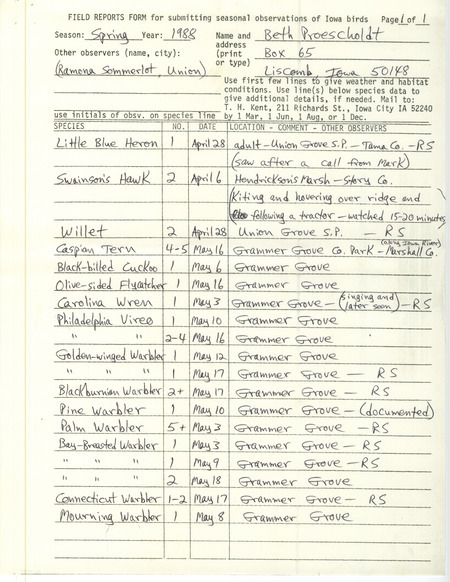 FIELD REPORTS FORM for submitting seasonal observations of Iowa birds Page 1 of 1
Season: Spring Year: 1988 Name and Beth Proescholdt
address
Other observers (name, city): (print Box 65
or type)
(Ramona Sommerlot, Union) Liscomb, Iowa 50148
Use first few lines to give weather and habitat
conditions. Use line(s) below species data to
give additional details, if needed. Mail to:
T. H. Kent, 211 Richards St., Iowa City IA 52240
use initials of obsv. on species line by 1 Mar, 1 Jun, 1 Aug, or 1 Dec.
SPECIES NO. DATE LOCATION - COMMENT - OTHER OBSERVERS
Little Blue Heron 1 April 28 adult - Union Grove S.P. - Tama Co. - RS
(saw after a call from Mark)
Swainson's Hawk 2 April 6 Hendrickson's Marsh - Story Co.
(Kiting and hovering over ridge and
following a tractor - watched 15-20 minutes)
Willet 2 April 28 Union Grove S.P. - RS
Caspian Tern 4-5 May 16 Grammer Grove Co. Park - (along Iowa River) Marshall Co.
Black-billed Cuckoo 1 May 6 Grammer Grove
Olive-sided Flycatcher 1 May 16 Grammer Grove
Carolina Wren 1 May 3 Grammer Grove - (singing and later seen) - RS
Philadelphia Vireo 1 May 10 Grammer Grove
" " 2-4 May 16 Grammer Grove
Golden-winged Warbler 1 May 12 Grammer Grove
" " " 1 May 17 Grammer Grove - RS
Blackburnian Warbler 2+ May 17 Grammer Grove - RS
Pine Warbler 1 May 10 Grammer Grove - (documented)
Palm Warbler 5+ May 3 Grammer Grove - RS
Bay-Breasted Warbler 1 May 3 Grammer Grove - RS
" " " 1 May 9 Grammer Grove - RS
" " " 2 May 18 Grammer Grove
Connecticut Warbler 1-2 May 17 Grammer Grove - RS
Mourning Warbler 1 May 8 Grammer Grove